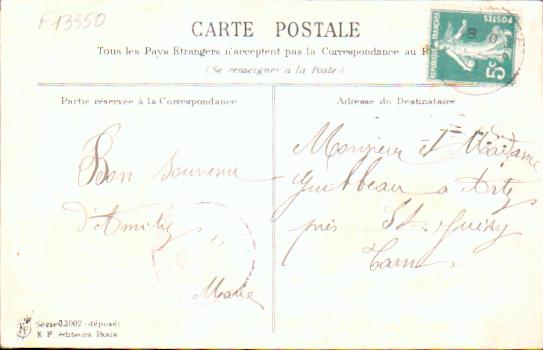 F13550
CARTE POSTALE
Tous les Pays Etrangers n'acceptent pas la Correspondance au
(Se renseigner à la Poste)
RÉPUBLIQUE FRANÇAISE
POSTES
5c
Partie réservée à la Correspondance
Adresse du Destinataire
Bon Souvenir
d'Amitié
Marie
Monsieur et Madame
à
près St
Tarn
Série 02002 (déposé)
K F éditeurs Paris